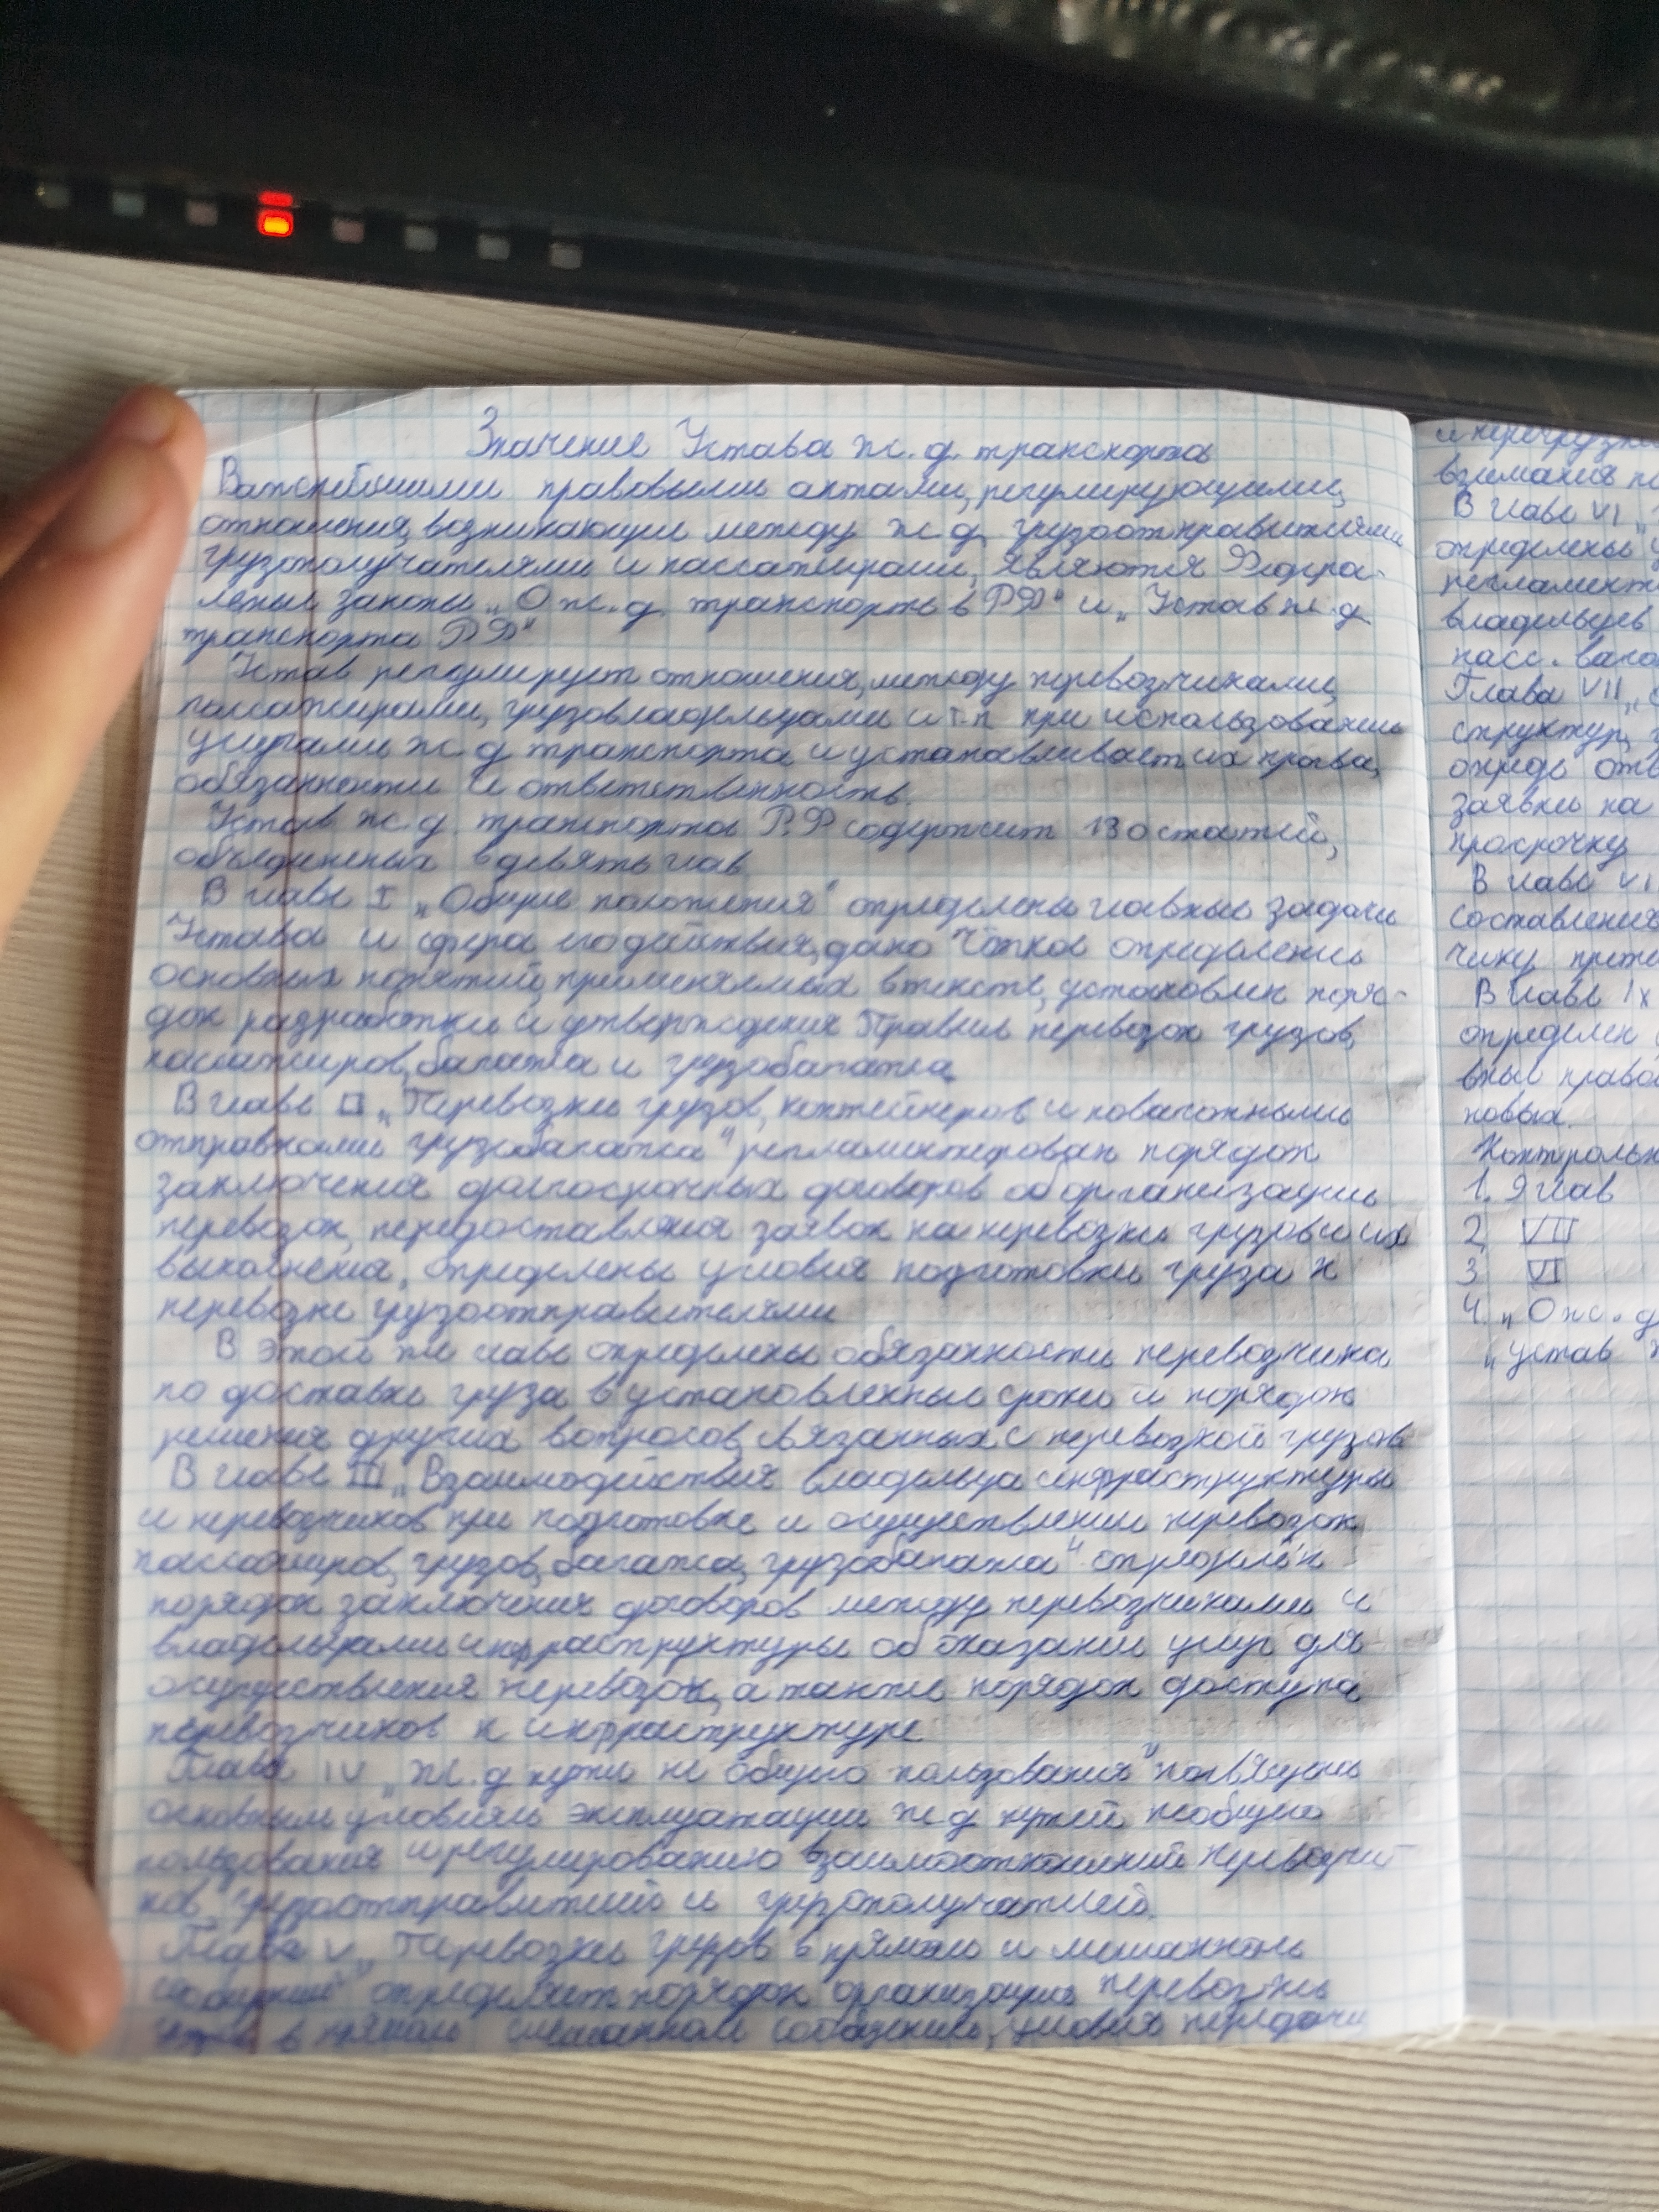 Значение Устава ж.д. транспорта
Важнейшими правовыми актами, регулирующими,
отношения, возникающие между ж.д. грузоотправителями
грузополучателями и пассажирами, являются Федера-
льные законы „О ж.д. транспорте в РФ" и „Устав ж.д.
транспорта РФ"
Устав регулирует отношения, между перевозчиками,
пассажирами, грузовладельцами и т.п при использовании
услугами ж.д транспорта и устанавливает их права,
обязанности и ответственность.
Устав ж.д. транспорта Р.Ф содержит 130 статей,
объединеных в девять глав
В главе I „Общие положения" определены главные задачи
Устава и сфера его действия, дано чёткое определение
основных понятий, применяемых в тексте, установлен поря-
док разработки и утверждения Правил перевозок грузов,
пассажиров, багажа и грузобагажа.
В главе II „Перевозки грузов, контейнеров и повагонными
отправками грузобагажа" регламентирован порядок
заключения долгосрочных договоров об организации
перевозок, передоставления заявок на перевозки грузов и их
выполнения, определены условия подготовки груза к
перевозке грузоотправителями
В этой же главе определены обязанности перевозчика
по доставке груза в установленные сроки и порядок
решения других вопросов, связанных с перевозкой грузов
В главе III „Взаимодействия владельца инфраструктуры
и перевозчиков при подготовке и осуществлении перевозок
пассажиров, грузов, багажа, грузобагажа" определён
порядок заключения договоров между перевозчиками и
владельцами инфраструктуры об оказании услуг для
осуществления перевозок, а также порядок доступа
перевозчиков к инфраструктуре
Глава IV „Ж.д пути не общего пользования" посвящена
основным условиям эксплуатации ж.д путей необщего
пользования и регулированию взаимоотношений перевозчи-
ков, грузоотправителей и грузополучателей.
Глава V „Перевозки грузов в прямом и смешанном
сообщении" определяет порядок организации перевозки
в прямом смешанном сообщении, условия передачи
и перегрузки
взимания
В главе VI „
определены
регламент
владельцев
пасс. ваго
Глава VII „
структур,
опредe отв
заявки на
просрочку
В главе VI
составления
чику прете
В главе IX
определен
вные право
новых.
Контрольн
1. 9 глав
2 VII
3 VI
4. „О ж.д
„устав